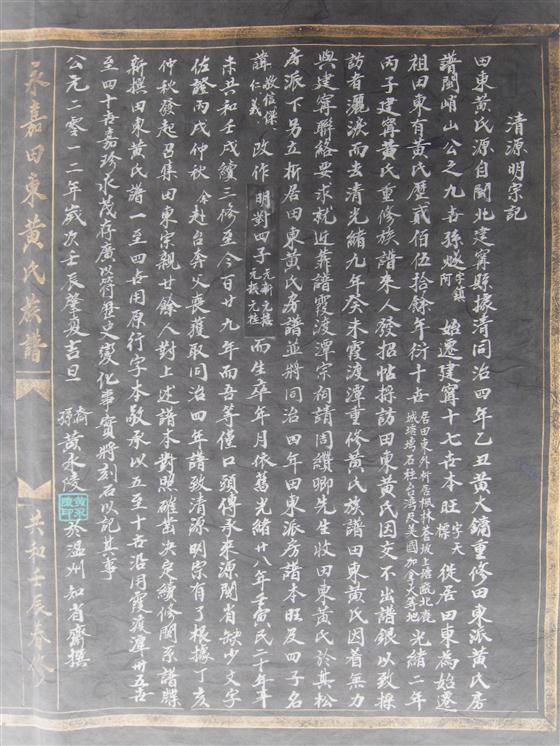 清源明宗記
田東黃氏源自閩北建寧縣據清同治四年乙丑黃大鏞重修田東派黃氏房
譜閩峭山公之九世孫 字鎮阿 始遷建寧十七世本旺 字天標 徙居田東為始遷
祖田東有黃氏歷貳佰伍拾餘年衍十世 居田東外析居楓林蒼坡上塘 北鹿城塘 石柱台灣及美國加拿大等地 光緒二年
丙子建寧黃氏重修族譜來人發招帖採訪田東黃氏因交不出譜銀以致採
訪者灑淚而去清光緒九年癸未霞渡潭重修黃氏族譜田東黃氏因着無力
與建寧聯絡要求就近靠譜霞渡潭宗祠請周纘卿先生收田東黃氏於其松
房派下另立析居田東黃氏房譜並將同治四年田東派房譜本旺及四子名
諱 敬信傑仁義 改作明對四子 元新元樓元振元桂 而生卒年月依舊光緒廿八年壬寅民二十年辛
未共和壬戌續三修至今百廿九年而吾等僅口頭傳承來源閩省缺少文字
佐證丙戌仲秋余赴台奔父喪獲取同治四年譜致清源明宗有了根據丁亥
仲秋發起召集田東宗親廿餘人對上述譜本對照確鑿決定續修關系譜牒
新撰田東黃氏譜一至四世用原行字本敬承以五至十世沿用霞渡潭卅五世
至四十世嘉珍永茂存廣以符歷史變化事實將刻石以記其事
公元二零一二年歲次壬辰肇夏吉旦 裔孫黃永陵於溫州知省齋撰
黃永陵印
永嘉田東黃氏族譜
共和壬辰春修